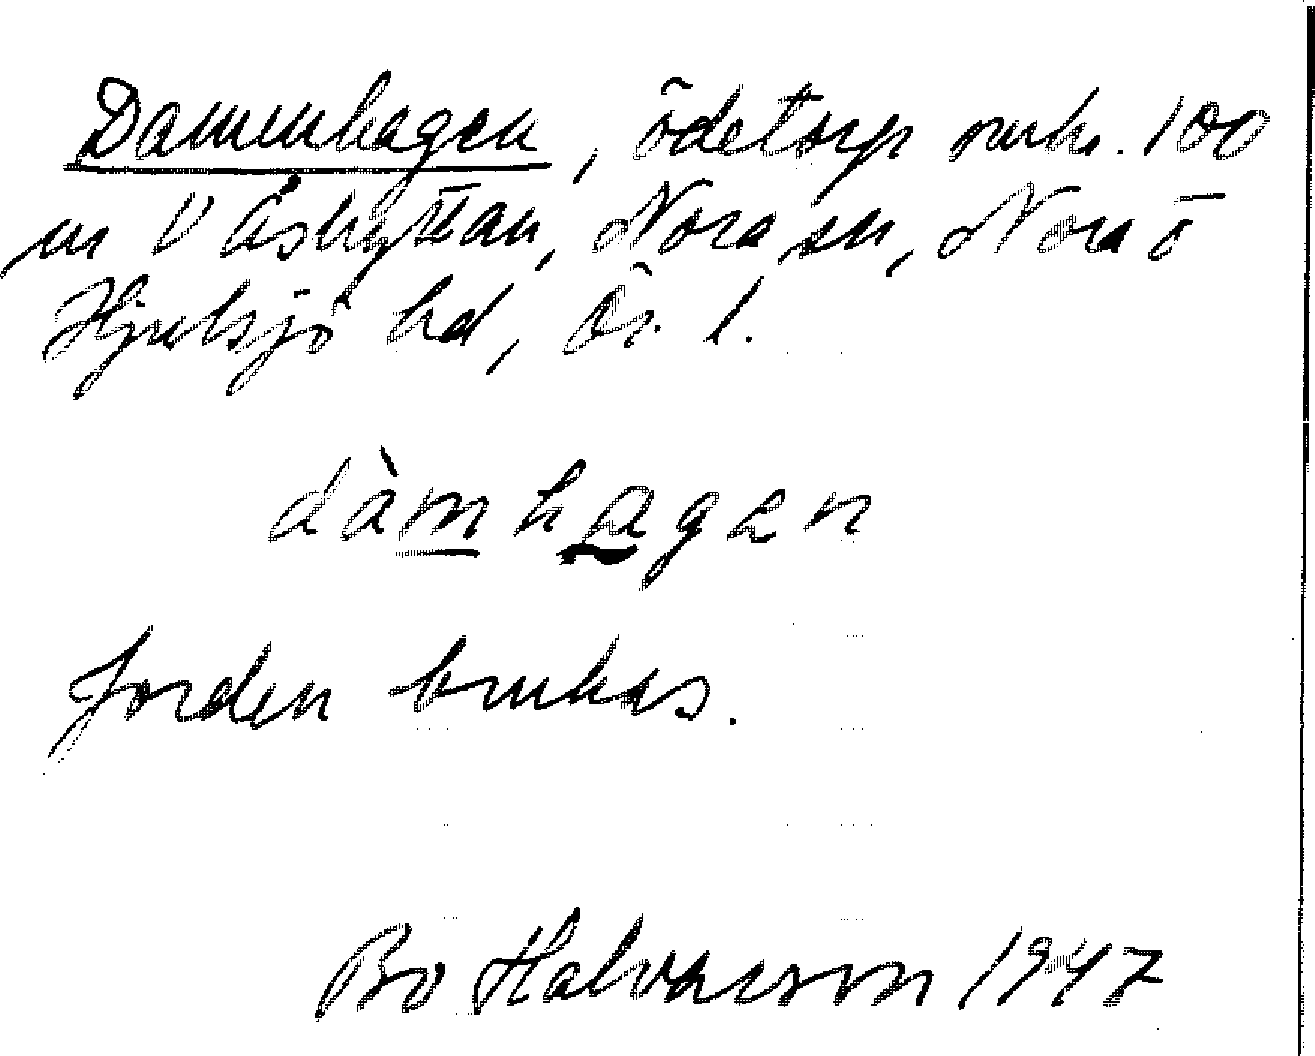 Dammhagen, ödetorp omkr. 100
m V Åshyttan, Nora sn, Nora o
Hjulsjö hd, Ör. l.
dàmhagen
Jorden brukas.
Bo Halvarson 1947